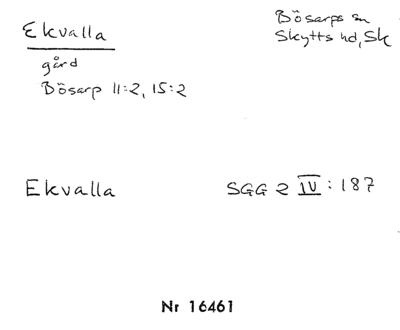 Ekvalla
Bösarps sn
Skytts hd, Sk
gård
Bösarp 11:2, 15:2
Ekvalla
SGG 2 IV : 187
Nr 16461